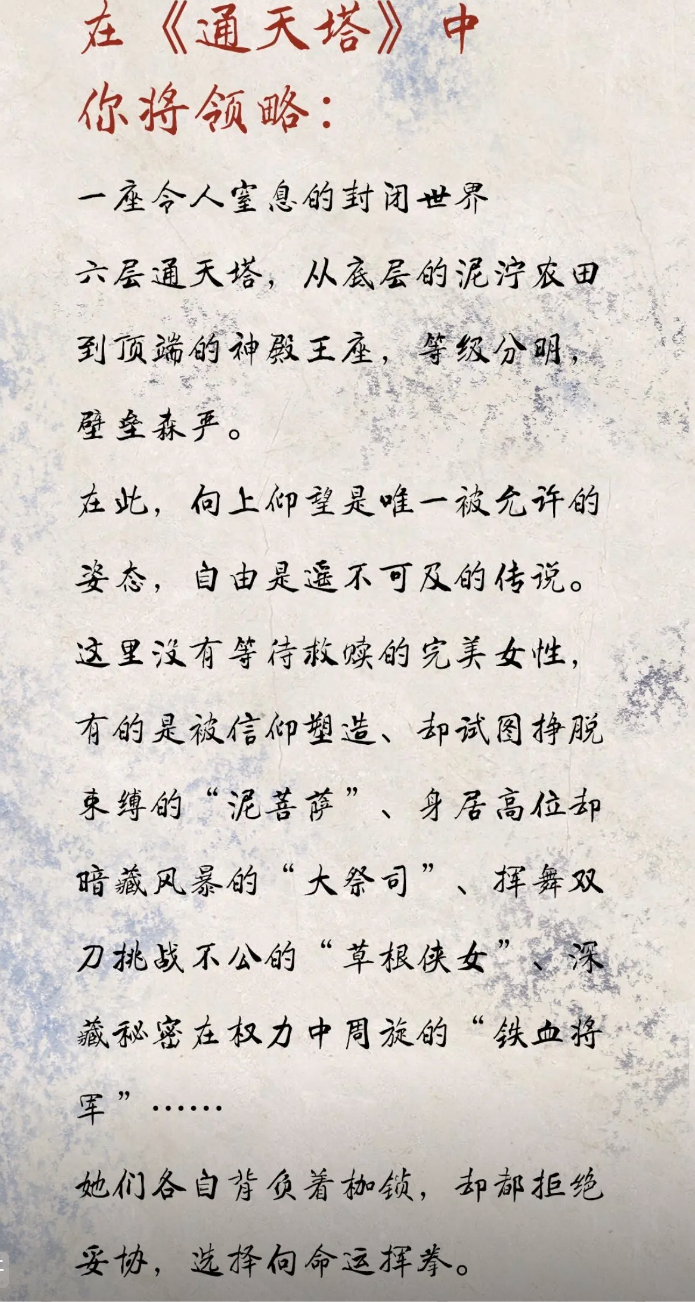 在《通天塔》中
你将领略：
一座令人窒息的封闭世界
六层通天塔，从底层的泥泞农田
到顶端的神殿王座，等级分明，
壁垒森严。
在此，向上仰望是唯一被允许的
姿态，自由是遥不可及的传说。
这里没有等待救赎的完美女性，
有的是被信仰塑造、却试图挣脱
束缚的“泥菩萨”、身居高位却
暗藏风暴的“大祭司”、挥舞双
刀挑战不公的“草根侠女”、深
藏秘密在权力中周旋的“铁血将
军”……
她们各自背负着枷锁，却都拒绝
妥协，选择向命运挥拳。